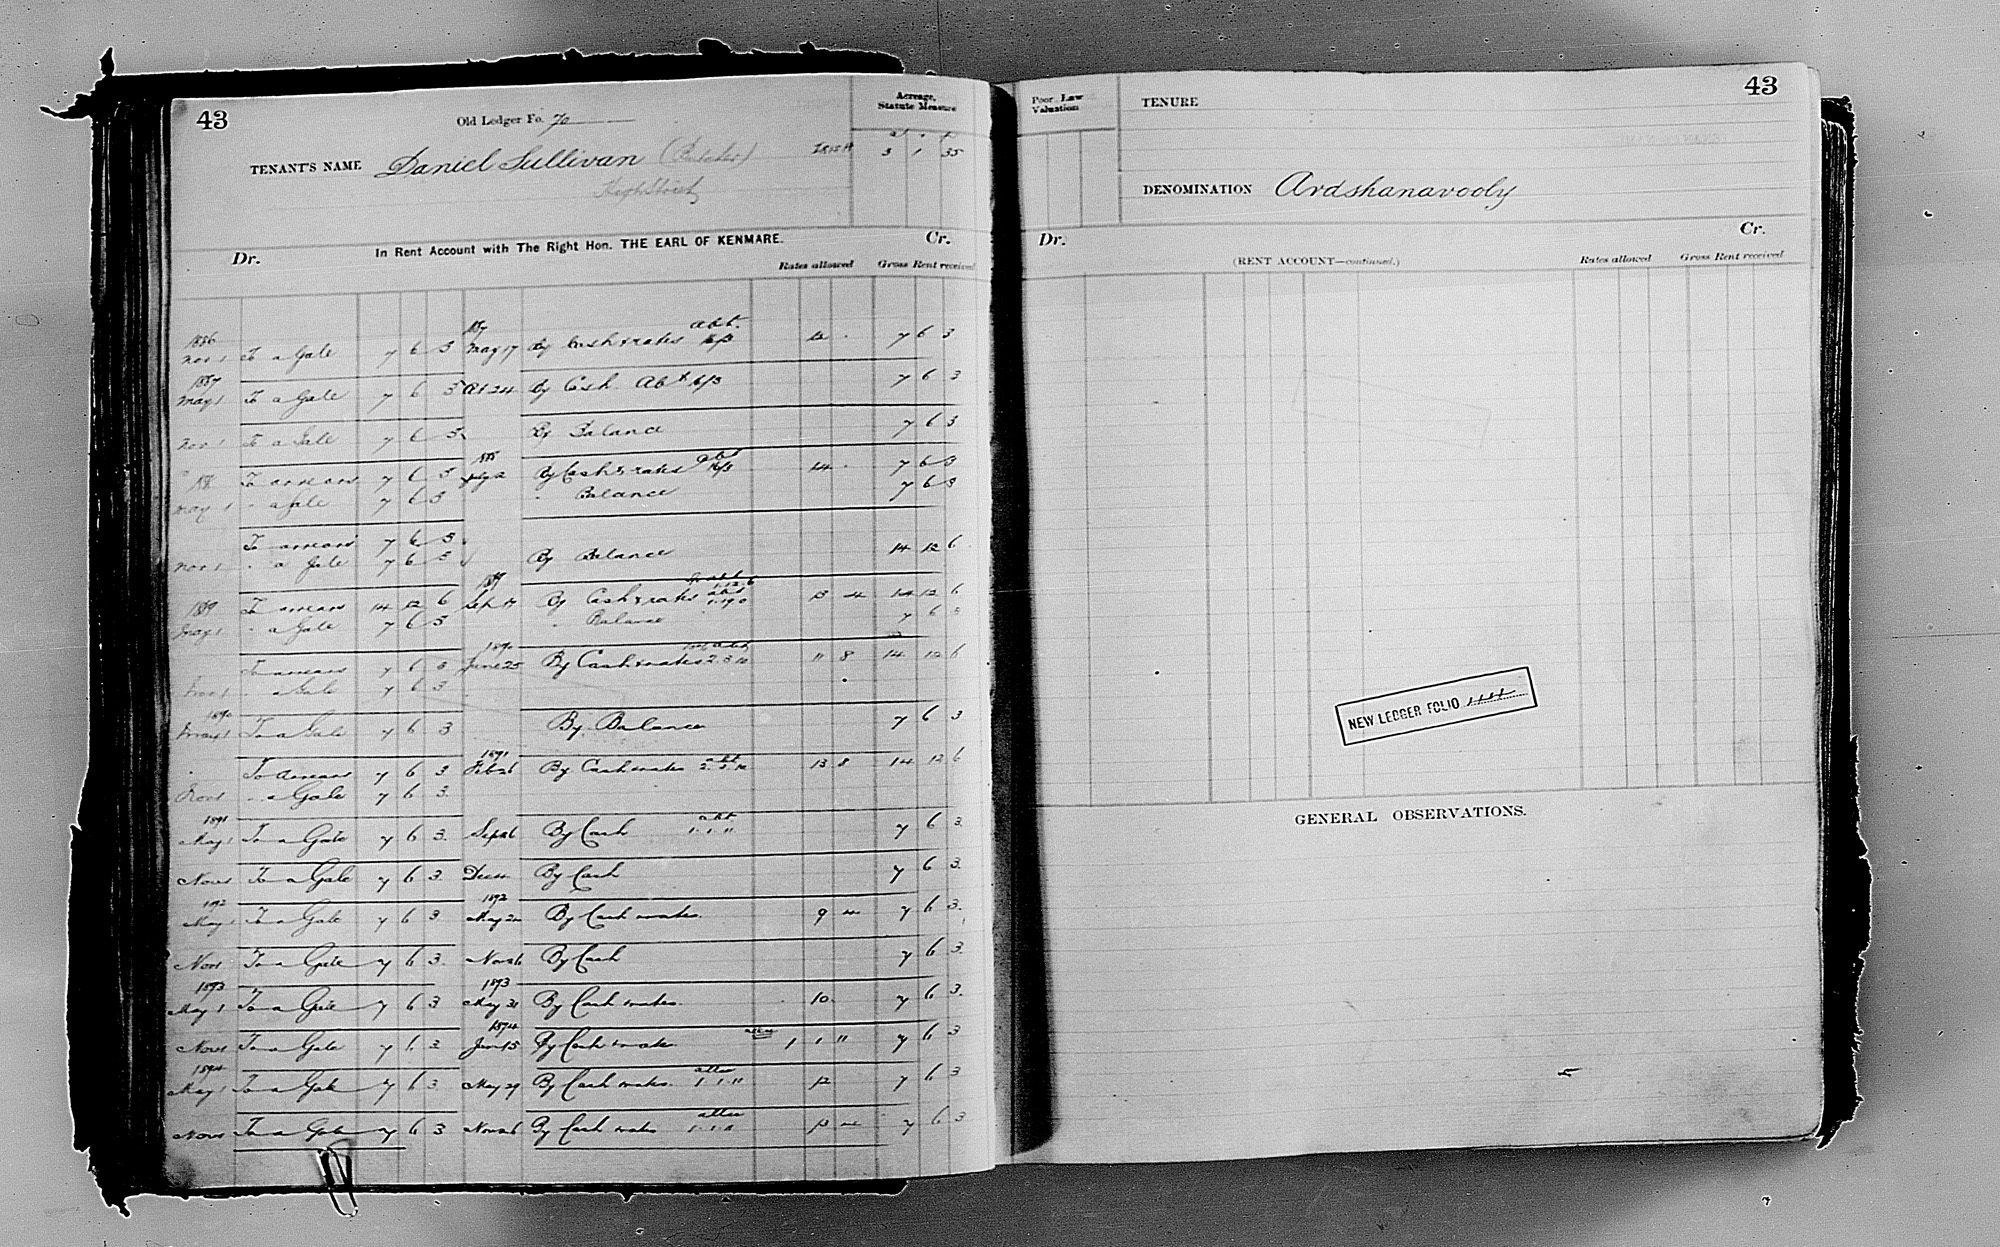 43
Old Ledger Fo. 70
Acreage, Statute Measure
TENANT'S NAME Daniel Sullivan (Butcher)
3 1 35
High Street
Dr. In Rent Account with The Right Hon. THE EARL OF KENMARE. Cr.
Rates allowed Gross Rent received
1886 Nov 1 To a Gale 7 6 3 May 17 By Cash & rates abt. 14 . 7 6 3
1887 May 1 To a Gale 7 6 3 Oct 24 By Cash Abt 6/3 7 6 3
Nov 1 To a Gale 7 6 3 By Balance 7 6 3
To arrears 7 6 3 1888 July 2 By Cash & rates abt 14 . 7 6 3
May 1 " a Gale 7 6 3 " Balance 7 6 3
To arrears 7 6 3
Nov 1 " a Gale 7 6 3 By Balance 14 12 6
1889 To arrears 14 12 6 1889 Sep By Cash & rates abt 13 4 14 12 6
May 1 " a Gale 7 6 3 " Balance 7 6 3
To arrears 7 6 3 1890 June 25 By Cash & rates 2.3.10 11 8 14 12 6
Nov 1 " a Gale 7 6 3
1890 May 1 To a Gale 7 6 3 By Balance 7 6 3
To arrears 7 6 3 1891 Feb 26 By Cash & rates abt 2.3.10 13 8 14 12 6
Nov 1 " a Gale 7 6 3
1891 May 1 To a Gale 7 6 3 Sep 26 By Cash abt 1.1.11 7 6 3
Nov 1 To a Gale 7 6 3 Dec By Cash 7 6 3
1892 May 1 To a Gale 7 6 3 1892 May By Cash & rates 9 4 7 6 3
Nov 1 To a Gale 7 6 3 Nov 26 By Cash 7 6 3
1893 May 1 To a Gale 7 6 3 1893 May 31 By Cash & rates 10 . 7 6 3
Nov 1 To a Gale 7 6 3 1894 Jan 15 By Cash & rates allce 1 1 11 7 6 3
1894 May 1 To a Gale 7 6 3 May 29 By Cash & rates allce 1.1.11 12 7 6 3
Nov 1 To a Gale 7 6 3 Nov 26 By Cash & rates allce 1.1.11 13 4 7 6 3
Poor Law Valuation
TENURE
43
DENOMINATION Ardshanavooly
Dr. Cr.
(RENT ACCOUNT—continued.) Rates allowed Gross Rent received
NEW LEDGER FOLIO
GENERAL OBSERVATIONS.